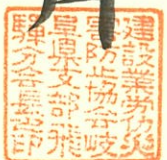 建設業労働災
害防止協会岐
阜県支部飛
騨分会長印